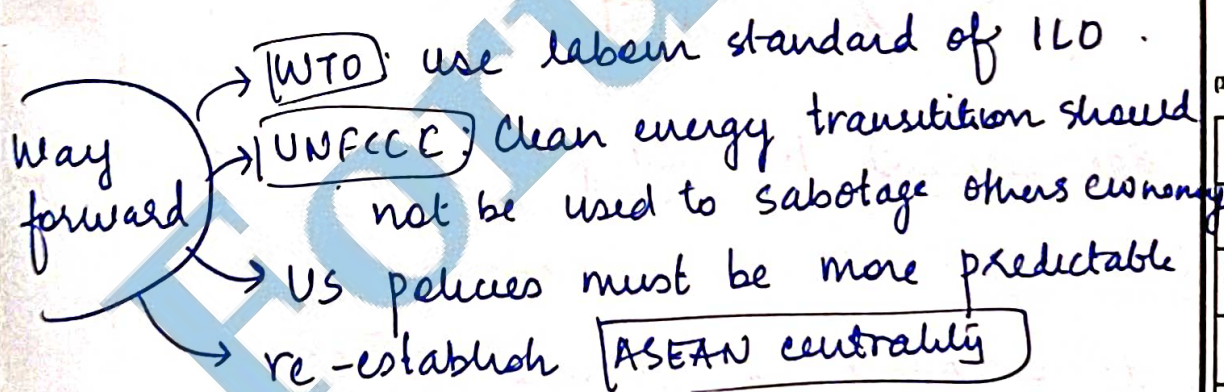 WTO: use labour standard of ILO.
UNFCCC: Clean energy transitition should
Way
forward
not be used to sabotage others economy
US policies must be more predictable
re-establish ASEAN centrality